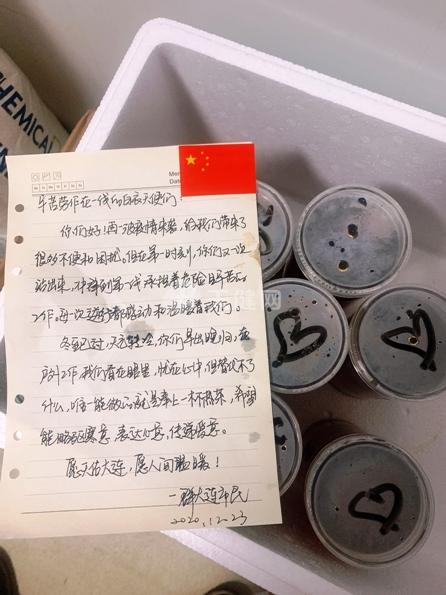 HEMICAL
Mem
Date
辛苦劳作在一线的白衣天使们:
你们好!再一波疫情来袭,给我们带来了
很多不便和困扰。但在第一时刻,你们又一次
站出来,冲到第一线承担着危险且辛苦的
工作,每一次逆行都感动和温暖着我们。
冬至已过,天气转冷,你们早出晚归,在
户外工作,我们看在眼里,忧在心中,但替代不了
什么,唯一能做的就是奉上一杯热茶,希望
能够驱寒意,表达心意,传递爱意。
愿天佑大连,愿人间温暖!
一群大连市民
2020.12.23